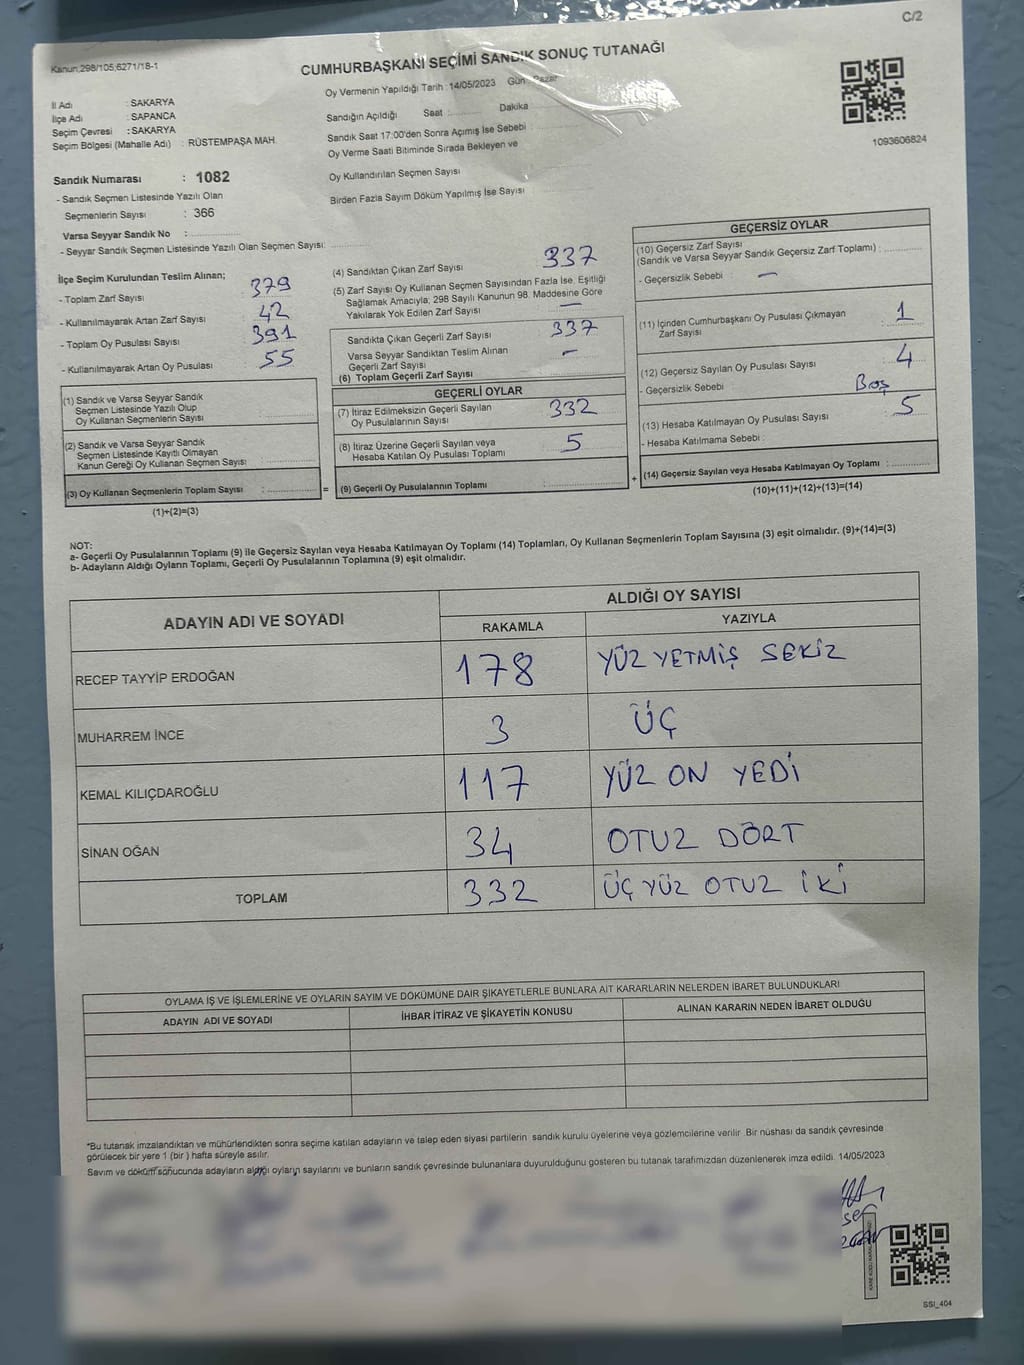 C/2
Kanun:298/105,6271/18-1
CUMHURBAŞKANI SEÇİMİ SANDIK SONUÇ TUTANAĞI
Oy Vermenin Yapıldığı Tarih :14/05/2023 Gün : Pazar
İl Adı : SAKARYA
İlçe Adı : SAPANCA
Seçim Çevresi : SAKARYA
Seçim Bölgesi (Mahalle Adı) : RÜSTEMPAŞA MAH.
Sandık Numarası : 1082
- Sandık Seçmen Listesinde Yazılı Olan
Seçmenlerin Sayısı : 366
Varsa Seyyar Sandık No :
- Seyyar Sandık Seçmen Listesinde Yazılı Olan Seçmen Sayısı:
Sandığın Açıldığı Saat : Dakika
Sandık Saat 17:00'den Sonra Açımış İse Sebebi :
Oy Verme Saati Bitiminde Sırada Bekleyen ve
Oy Kullandırılan Seçmen Sayısı
Birden Fazla Sayım Döküm Yapılmış İse Sayısı :
1093606824
İlçe Seçim Kurulundan Teslim Alınan;
- Toplam Zarf Sayısı 379
- Kullanılmayarak Artan Zarf Sayısı : 42
- Toplam Oy Pusulası Sayısı : 391
- Kullanılmayarak Artan Oy Pusulası : 55
(1) Sandık ve Varsa Seyyar Sandık
Seçmen Listesinde Yazılı Olup
Oy Kullanan Seçmenlerin Sayısı :
(2) Sandık ve Varsa Seyyar Sandık
Seçmen Listesinde Kayıtlı Olmayan
Kanun Gereği Oy Kullanan Seçmen Sayısı :
(3) Oy Kullanan Seçmenlerin Toplam Sayısı :
(1)+(2)=(3)
=
(4) Sandıktan Çıkan Zarf Sayısı : 337
(5) Zarf Sayısı Oy Kullanan Seçmen Sayısından Fazla İse, Eşitliği
Sağlamak Amacıyla; 298 Sayılı Kanunun 98. Maddesine Göre
Yakılarak Yok Edilen Zarf Sayısı : —
Sandıkta Çıkan Geçerli Zarf Sayısı : 337
Varsa Seyyar Sandıktan Teslim Alınan
Geçerli Zarf Sayısı : —
(6) Toplam Geçerli Zarf Sayısı :
GEÇERLİ OYLAR
(7) İtiraz Edilmeksizin Geçerli Sayılan
Oy Pusulalarının Sayısı : 332
(8) İtiraz Üzerine Geçerli Sayılan veya
Hesaba Katılan Oy Pusulası Toplamı : 5
(9) Geçerli Oy Pusulalarının Toplamı :
+
GEÇERSİZ OYLAR
(10) Geçersiz Zarf Sayısı
(Sandık ve Varsa Seyyar Sandık Geçersiz Zarf Toplamı) :
- Geçersizlik Sebebi : —
(11) İçinden Cumhurbaşkanı Oy Pusulası Çıkmayan
Zarf Sayısı : 1
(12) Geçersiz Sayılan Oy Pusulası Sayısı : 4
- Geçersizlik Sebebi : Boş
(13) Hesaba Katılmayan Oy Pusulası Sayısı : 5
- Hesaba Katılmama Sebebi :
(14) Geçersiz Sayılan veya Hesaba Katılmayan Oy Toplamı :
(10)+(11)+(12)+(13)=(14)
NOT:
a- Geçerli Oy Pusulalarının Toplamı (9) ile Geçersiz Sayılan veya Hesaba Katılmayan Oy Toplamı (14) Toplamları, Oy Kullanan Seçmenlerin Toplam Sayısına (3) eşit olmalıdır. (9)+(14)=(3)
b- Adayların Aldığı Oyların Toplamı, Geçerli Oy Pusulalarının Toplamına (9) eşit olmalıdır.
ADAYIN ADI VE SOYADI
ALDIĞI OY SAYISI
RAKAMLA YAZIYLA
RECEP TAYYİP ERDOĞAN 178 YÜZ YETMİŞ SEKİZ
MUHARREM İNCE 3 ÜÇ
KEMAL KILIÇDAROĞLU 117 YÜZ ON YEDİ
SİNAN OĞAN 34 OTUZ DÖRT
TOPLAM 332 ÜÇ YÜZ OTUZ İKİ
OYLAMA İŞ VE İŞLEMLERİNE VE OYLARIN SAYIM VE DÖKÜMÜNE DAİR ŞİKAYETLERLE BUNLARA AİT KARARLARIN NELERDEN İBARET BULUNDUKLARI
ADAYIN ADI VE SOYADI İHBAR İTİRAZ VE ŞİKAYETİN KONUSU ALINAN KARARIN NEDEN İBARET OLDUĞU
*Bu tutanak imzalandıktan ve mühürlendikten sonra seçime katılan adayların ve talep eden siyasi partilerin sandık kurulu üyelerine veya gözlemcilerine verilir. Bir nüshası da sandık çevresinde
görülecek bir yere 1 (bir ) hafta süreyle asılır.
Sayım ve döküm sonucunda adayların aldığı oyların sayılarını ve bunların sandık çevresinde bulunanlara duyurulduğunu gösteren bu tutanak tarafımızdan düzenlenerek imza edildi. 14/05/2023
SSI_404